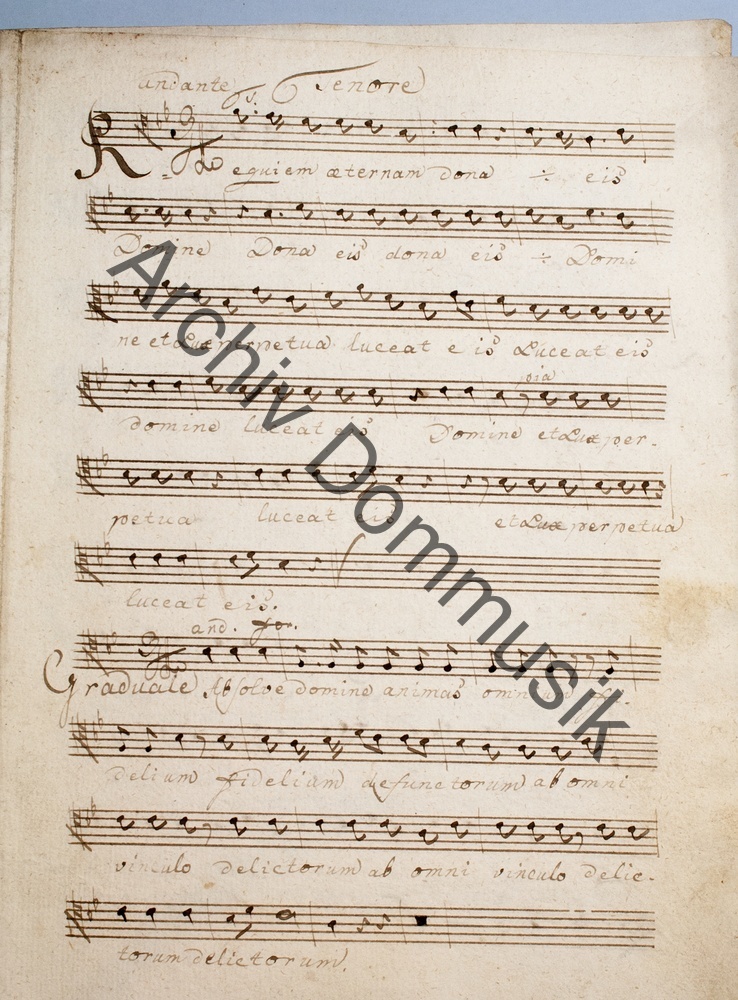 andante Tenore
Requiem æternam dona ÷ eis
Domine Dona eis dona eis ÷ Domi
ne et Lux perpetua luceat e is Luceat eis
pia
domine luceat eis Domine et Lux per-
petua luceat eis et Lux perpetua
luceat eis.
and. for.
Graduale Absolve domine animas omnium fi-
delium fidelium defunctorum ab omni
vinculo delictorum ab omni vinculo delic-
torum delictorum.
Archiv Dommusik